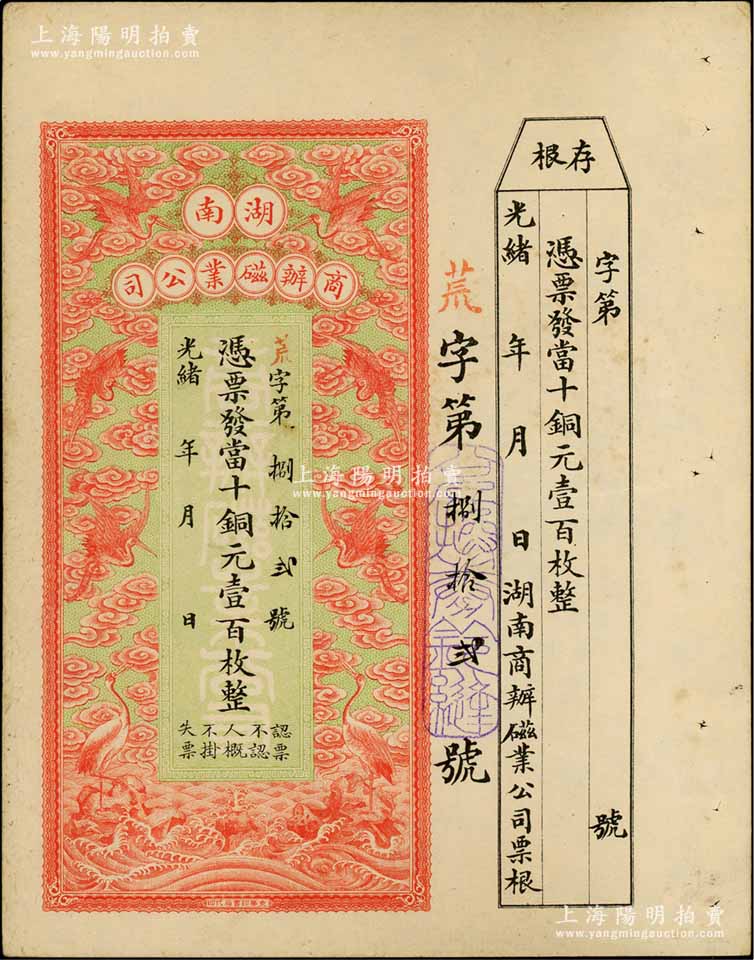 上海陽明拍賣
www.yangmingauction.com
存根
字第 號
憑票發當十銅元壹百枚整
光緒 年 月 日 湖南商辦磁業公司票根
荒字第捌拾弍號
湖南
商辦磁業公司
荒字第捌拾弍號
憑票發當十銅元壹百枚整
光緒 年 月 日
認票
不認
人概
不掛
失票
上海陽明拍賣
www.yangmingauction.com
上海陽明拍賣
www.yangmingauction.com